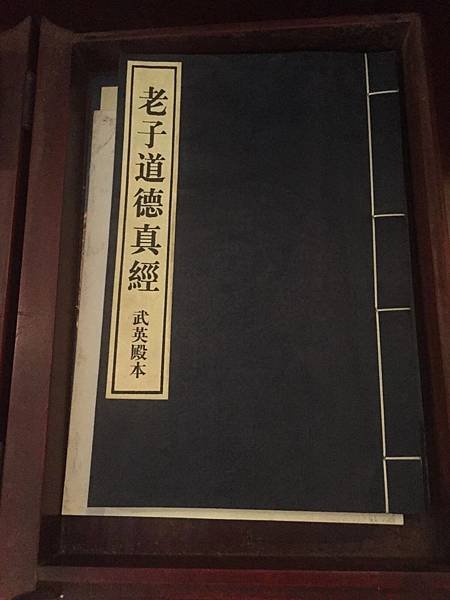 老子道德真經
武英殿本